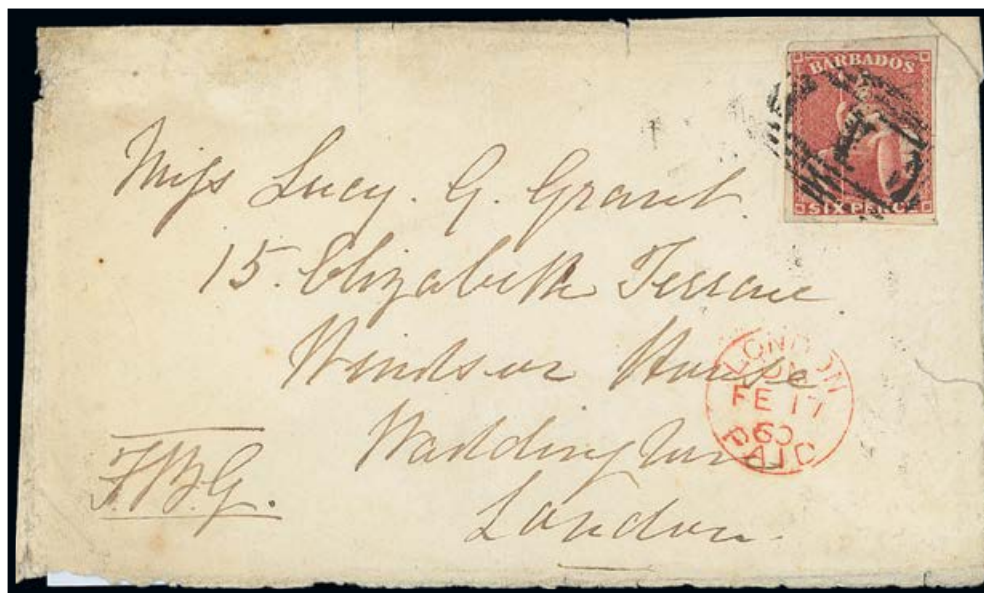 BARBADOS
SIX PENCE
Miss Lucy. G. Grant.
15. Elizabeth Terrace.
Windsor House
London.
LONDON
FE 17
60
PAID
F.B.G.